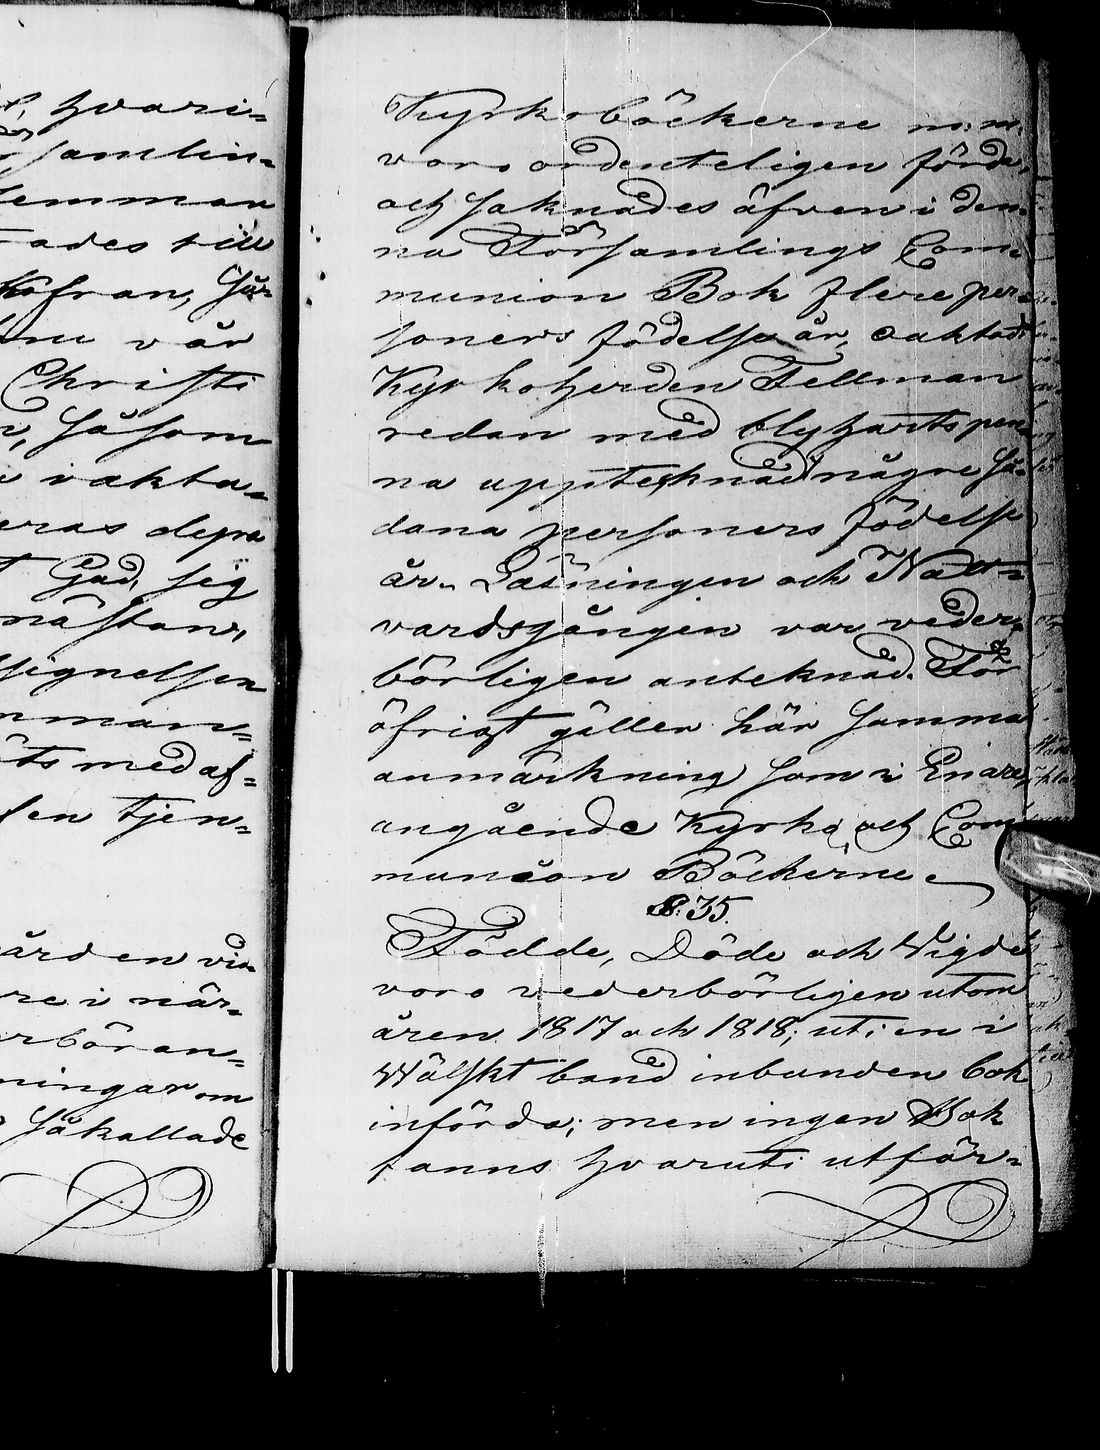 hvari-
samlin-
lemmar
ades till
ofran, Här-
vår
Christi
såsom
i vakta-
eras depra
Gud, sig
nästan,
signelsen
mman-
med af-
en tjen-
ården vi-
re i när-
erbör an-
ningar om
såkallade
Kyrkoböckerne m: m:
voro ordenteligen förde,
och saknades äfven i den-
na Församlings Com-
munion Bok flere per-
soners födelse år, oaktadt
Kyrkoherden Fellman
redan med blyhartspen-
na upptecknad några så-
dana personers födelse
år. Läsningen och Natt-
vardsgången var veder-
börligen anteknad. För
öfrigt gäller här samma
anmärkning som i Enare,
angående Kyrko och Com-
munion Böckerne
§. 35.
Födde, Döde och Wigde
voro vederbörligen utom
åren 1817 och 1818, uti en i
Wälskt band inbunden bok
införda; men ingen Bok
fanns hvaruti utflör-